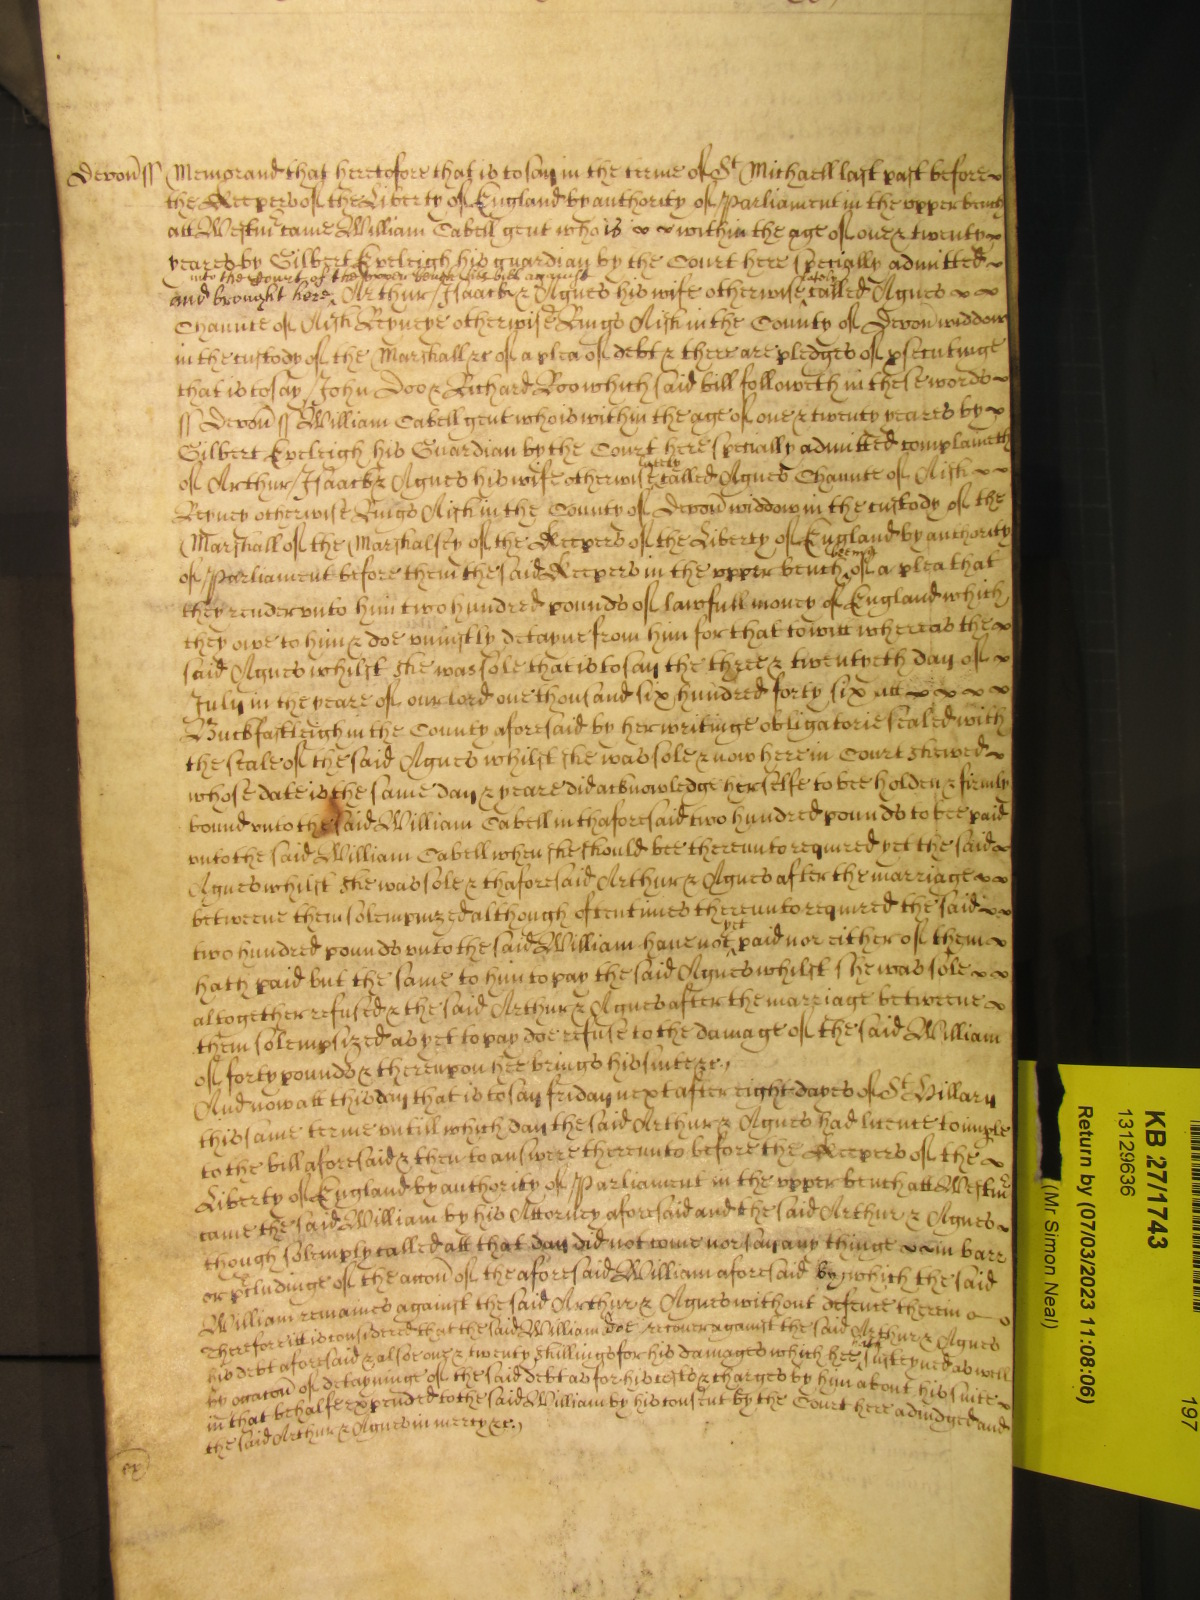 Devon ss Memorand that heretofore that is to say in the terme of St Michaell last past before
the Keepers of the Liberty of England by authority of Parliament in the upper bench
att Westm came William Cabell gent who is within the age of one & twenty
yeares by Gilbert Eveleigh his guardian by the Court here specially admitted
into the Court of the upper bench his bill against
lately
and brought here Arthur Isaack & Agnes his wife otherwise called Agnes
Channte of Aish Reyneye otherwise Kings Aish in the County of Devon widdow
in the custody of the Marshall &c of a plea of debt & there are pledges of psecutinge
that is to say John Doo & Richard Roo which said bill followeth in these words
ss Devon ss William Cabell gent who is within the age of one & twenty yeares by
Gilbert Eveleigh his Guardian by the Court here specially admitted complaineth
lately
of Arthur Isaack & Agnes his wife otherwise called Agnes Channte of Aish
Reyney otherwise Kings Aish in the County of Devon widdow in the custody of the
Marshall of the Marshalsey of the Keepers of the Liberty of England by authority
being
of Parliament before them the said Keepers in the upper bench of a plea that
they render unto him two hundred pounds of lawfull money of England which
they owe to him & doe uniustly detayne from him for that to witt whereas the
said Agnes whilst she was sole that is to say the three & twentyeth day of
July in the yeare of our lord one thousand six hundred forty six att
Buckfastleigh in the County aforesaid by her writinge obligatorie sealed with
the seale of the said Agnes whilst she was sole & now here in Court shewed
whose date is the same day & yeare did acknowledge herselfe to bee holden & firmly
bound unto the said William Cabell in thaforesaid two hundred pounds to bee paid
unto the said William Cabell when she should bee thereunto required yet the said
Agnes whilst she was sole & thaforesaid Arthur & Agnes after the marriage
betweene them solempnized although oftentimes thereunto required the said
yet
two hundred pounds unto the said William have not paid nor either of them
hath paid but the same to him to pay the said Agnes whilst she was sole
altogether refused & the said Arthur & Agnes after the marriage betweene
them solempnized as yet to pay doe refuse to the damage of the said William
of forty pounds & thereupon hee brings his suite &c.
And now att this day that is to say friday next after eight dayes of St Hillary
this same terme untill which day the said Arthur & Agnes had licence to imple
to the bill aforesaid & then to answere thereunto before the Keepers of the
Liberty of England by authority of Parliament in the upper bench att Westm
came the said William by his Attorney aforesaid and the said Arthur & Agnes
though solemply called att that day did not come nor say any thinge in barr
or pcludinge of the accon of the aforesaid William aforesaid by which the said
William remaines against the said Arthur & Agnes without defence therein
Therefore itt is considered that the said William doe recover against the said Arthur & Agnes
hath
his debt aforesaid & alsoe one & twenty shillings for his damages which hee susteyned as well
by occaton of detayninge of the said debt as for his costs & charges by him about his suite
in that behalfe expended to the said William by his consent by the Court here adiudged and
the said Arthur & Agnes in mercy &c.
KB 27/1743
13129636
Return by (07/03/2023 11:08:06)
(Mr Simon Neal)
197